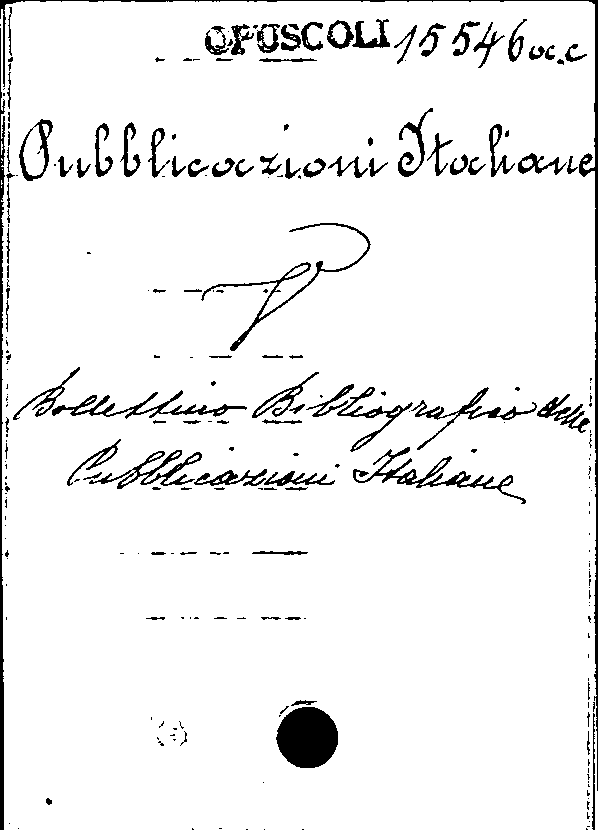 OPUSCOLI 15546 a.c
Pubblicazioni Italiane
V
Bollettino Bibliografico delle
Pubblicazioni Italiane